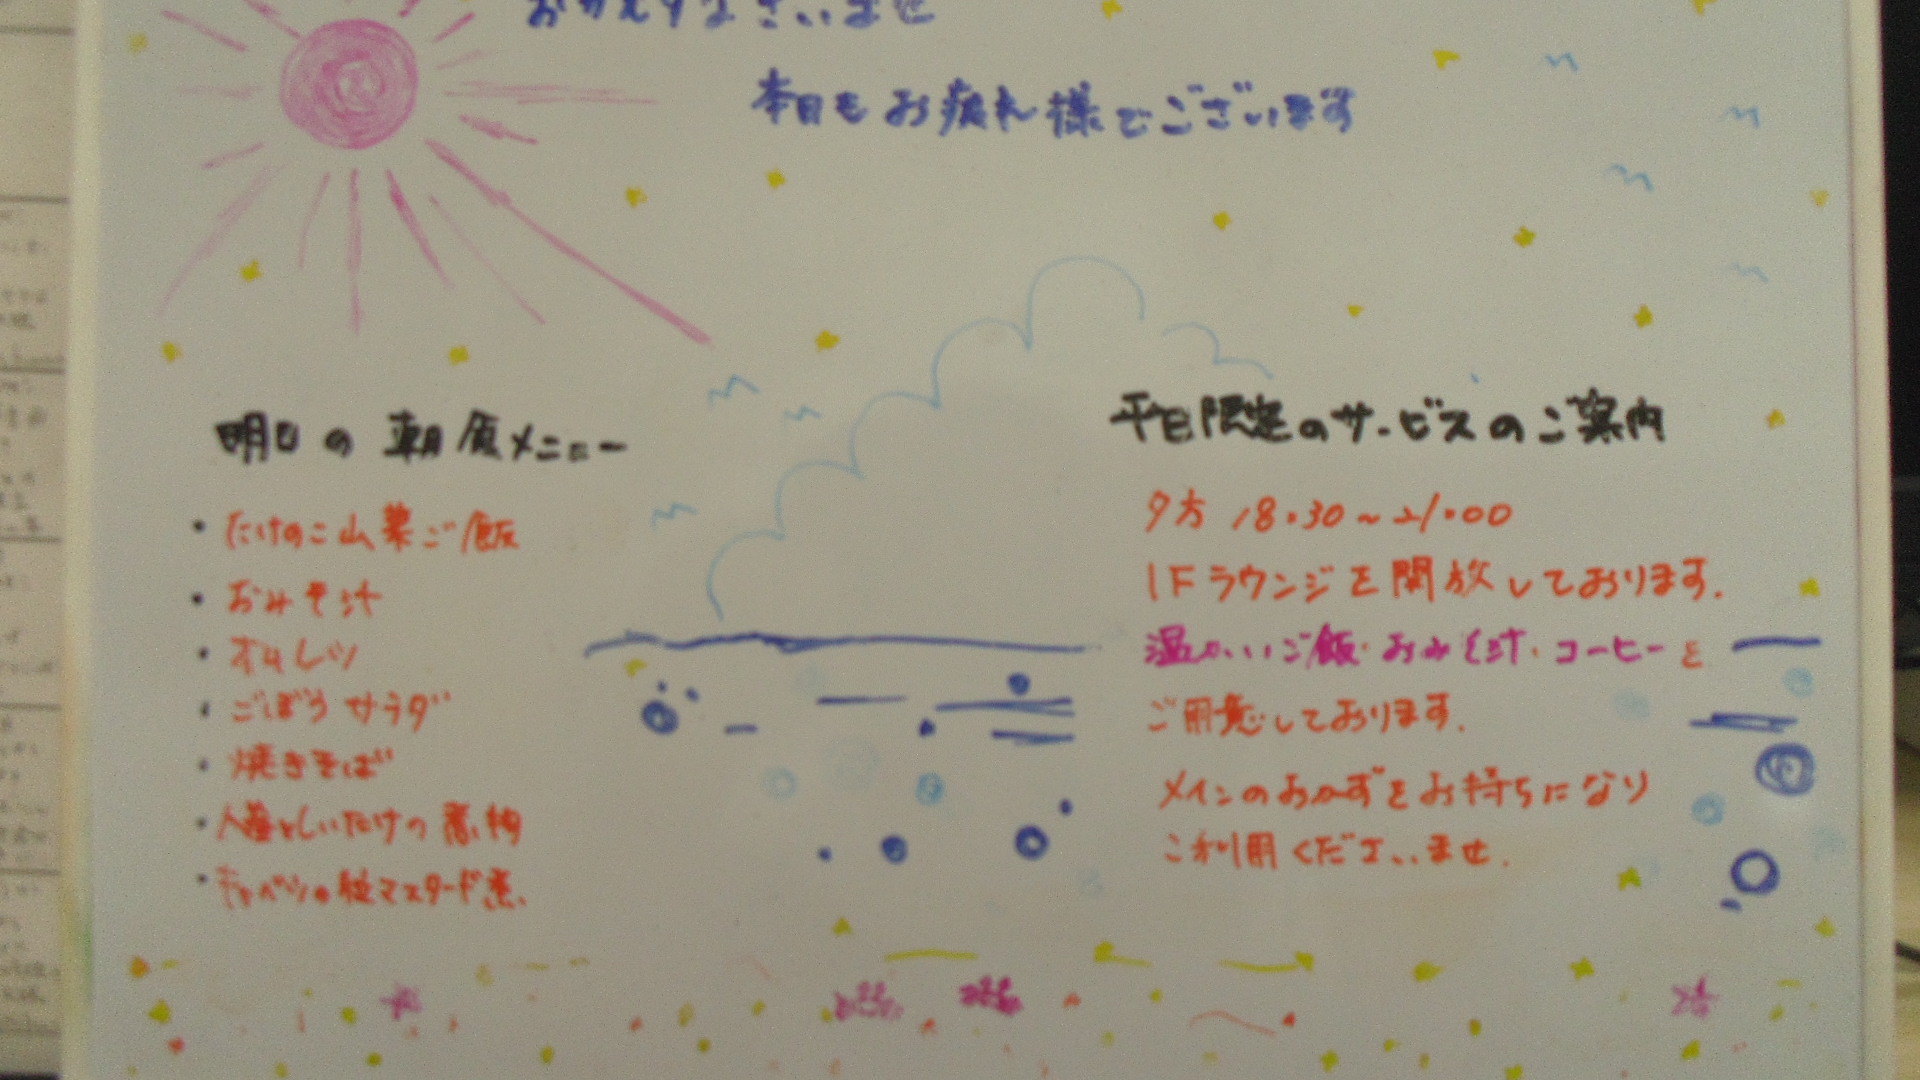 おかえりなさいませ
本日もお疲れ様でございます
明日の朝食メニュー
・たけのこ山菜ご飯
・おみそ汁
・オムレツ
・ごぼうサラダ
・焼きそば
・人参としいたけの煮物
・キャベツの粒マスタード煮
平日限定のサービスのご案内
夕方 18:30~21:00
1Fラウンジを開放しております.
温かいご飯・おみそ汁・コーヒーを
ご用意しております.
メインのおかずをお持ちになり
ご利用くださいませ.